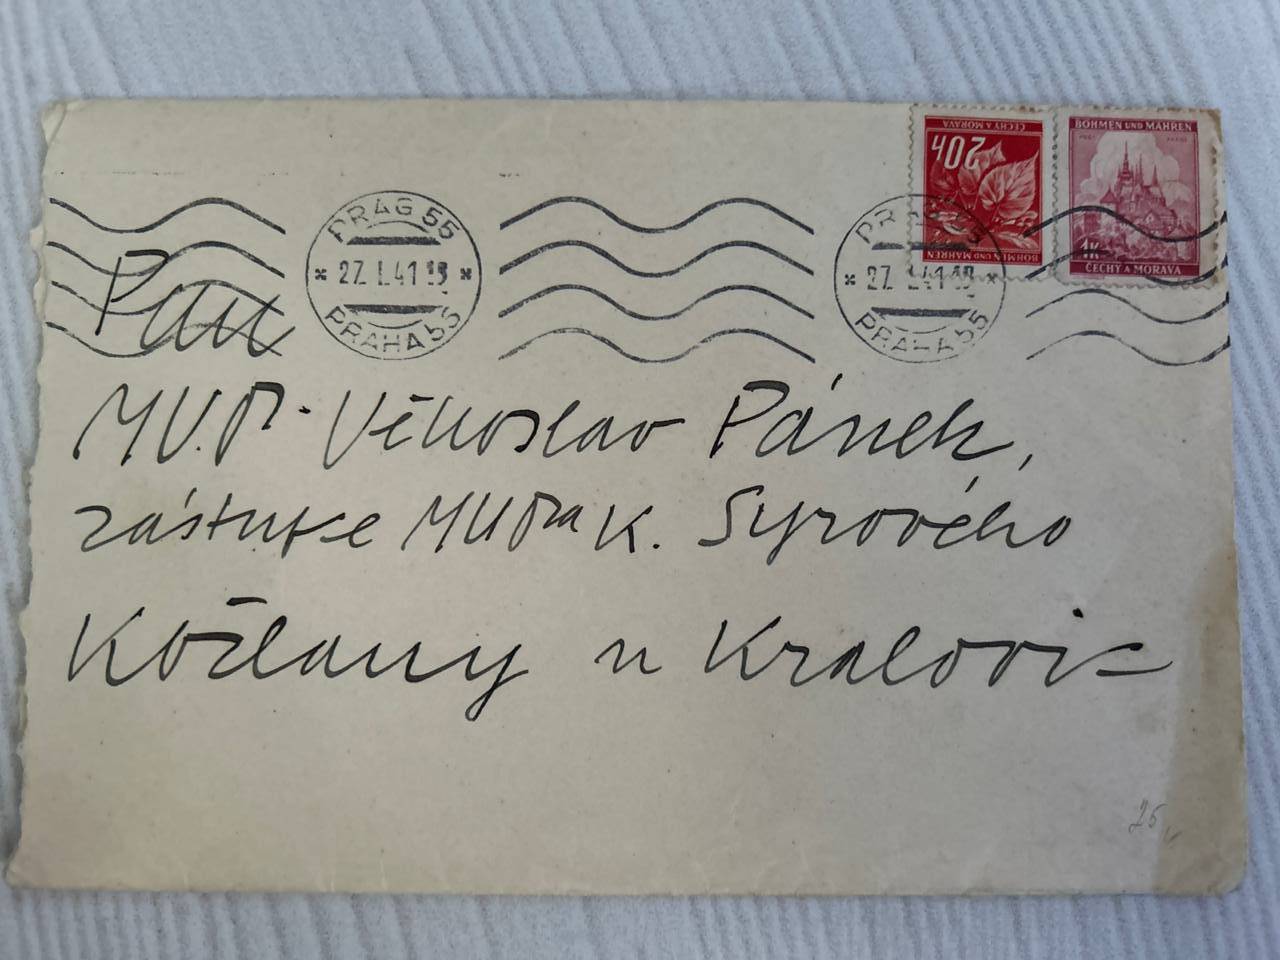 ČECHY A MORAVA
20h
BÖHMEN UND MÄHREN
BÖHMEN UND MÄHREN
1K
ČECHY A MORAVA
PRAG 55
* 27. I. 41 *
PRAHA 55
PRAG 55
* 27. I. 41 *
PRAHA 55
Pan
MUDr. Věkoslav Pánek,
zástupce MUDra K. Syrového
Kožlany u Kralovic